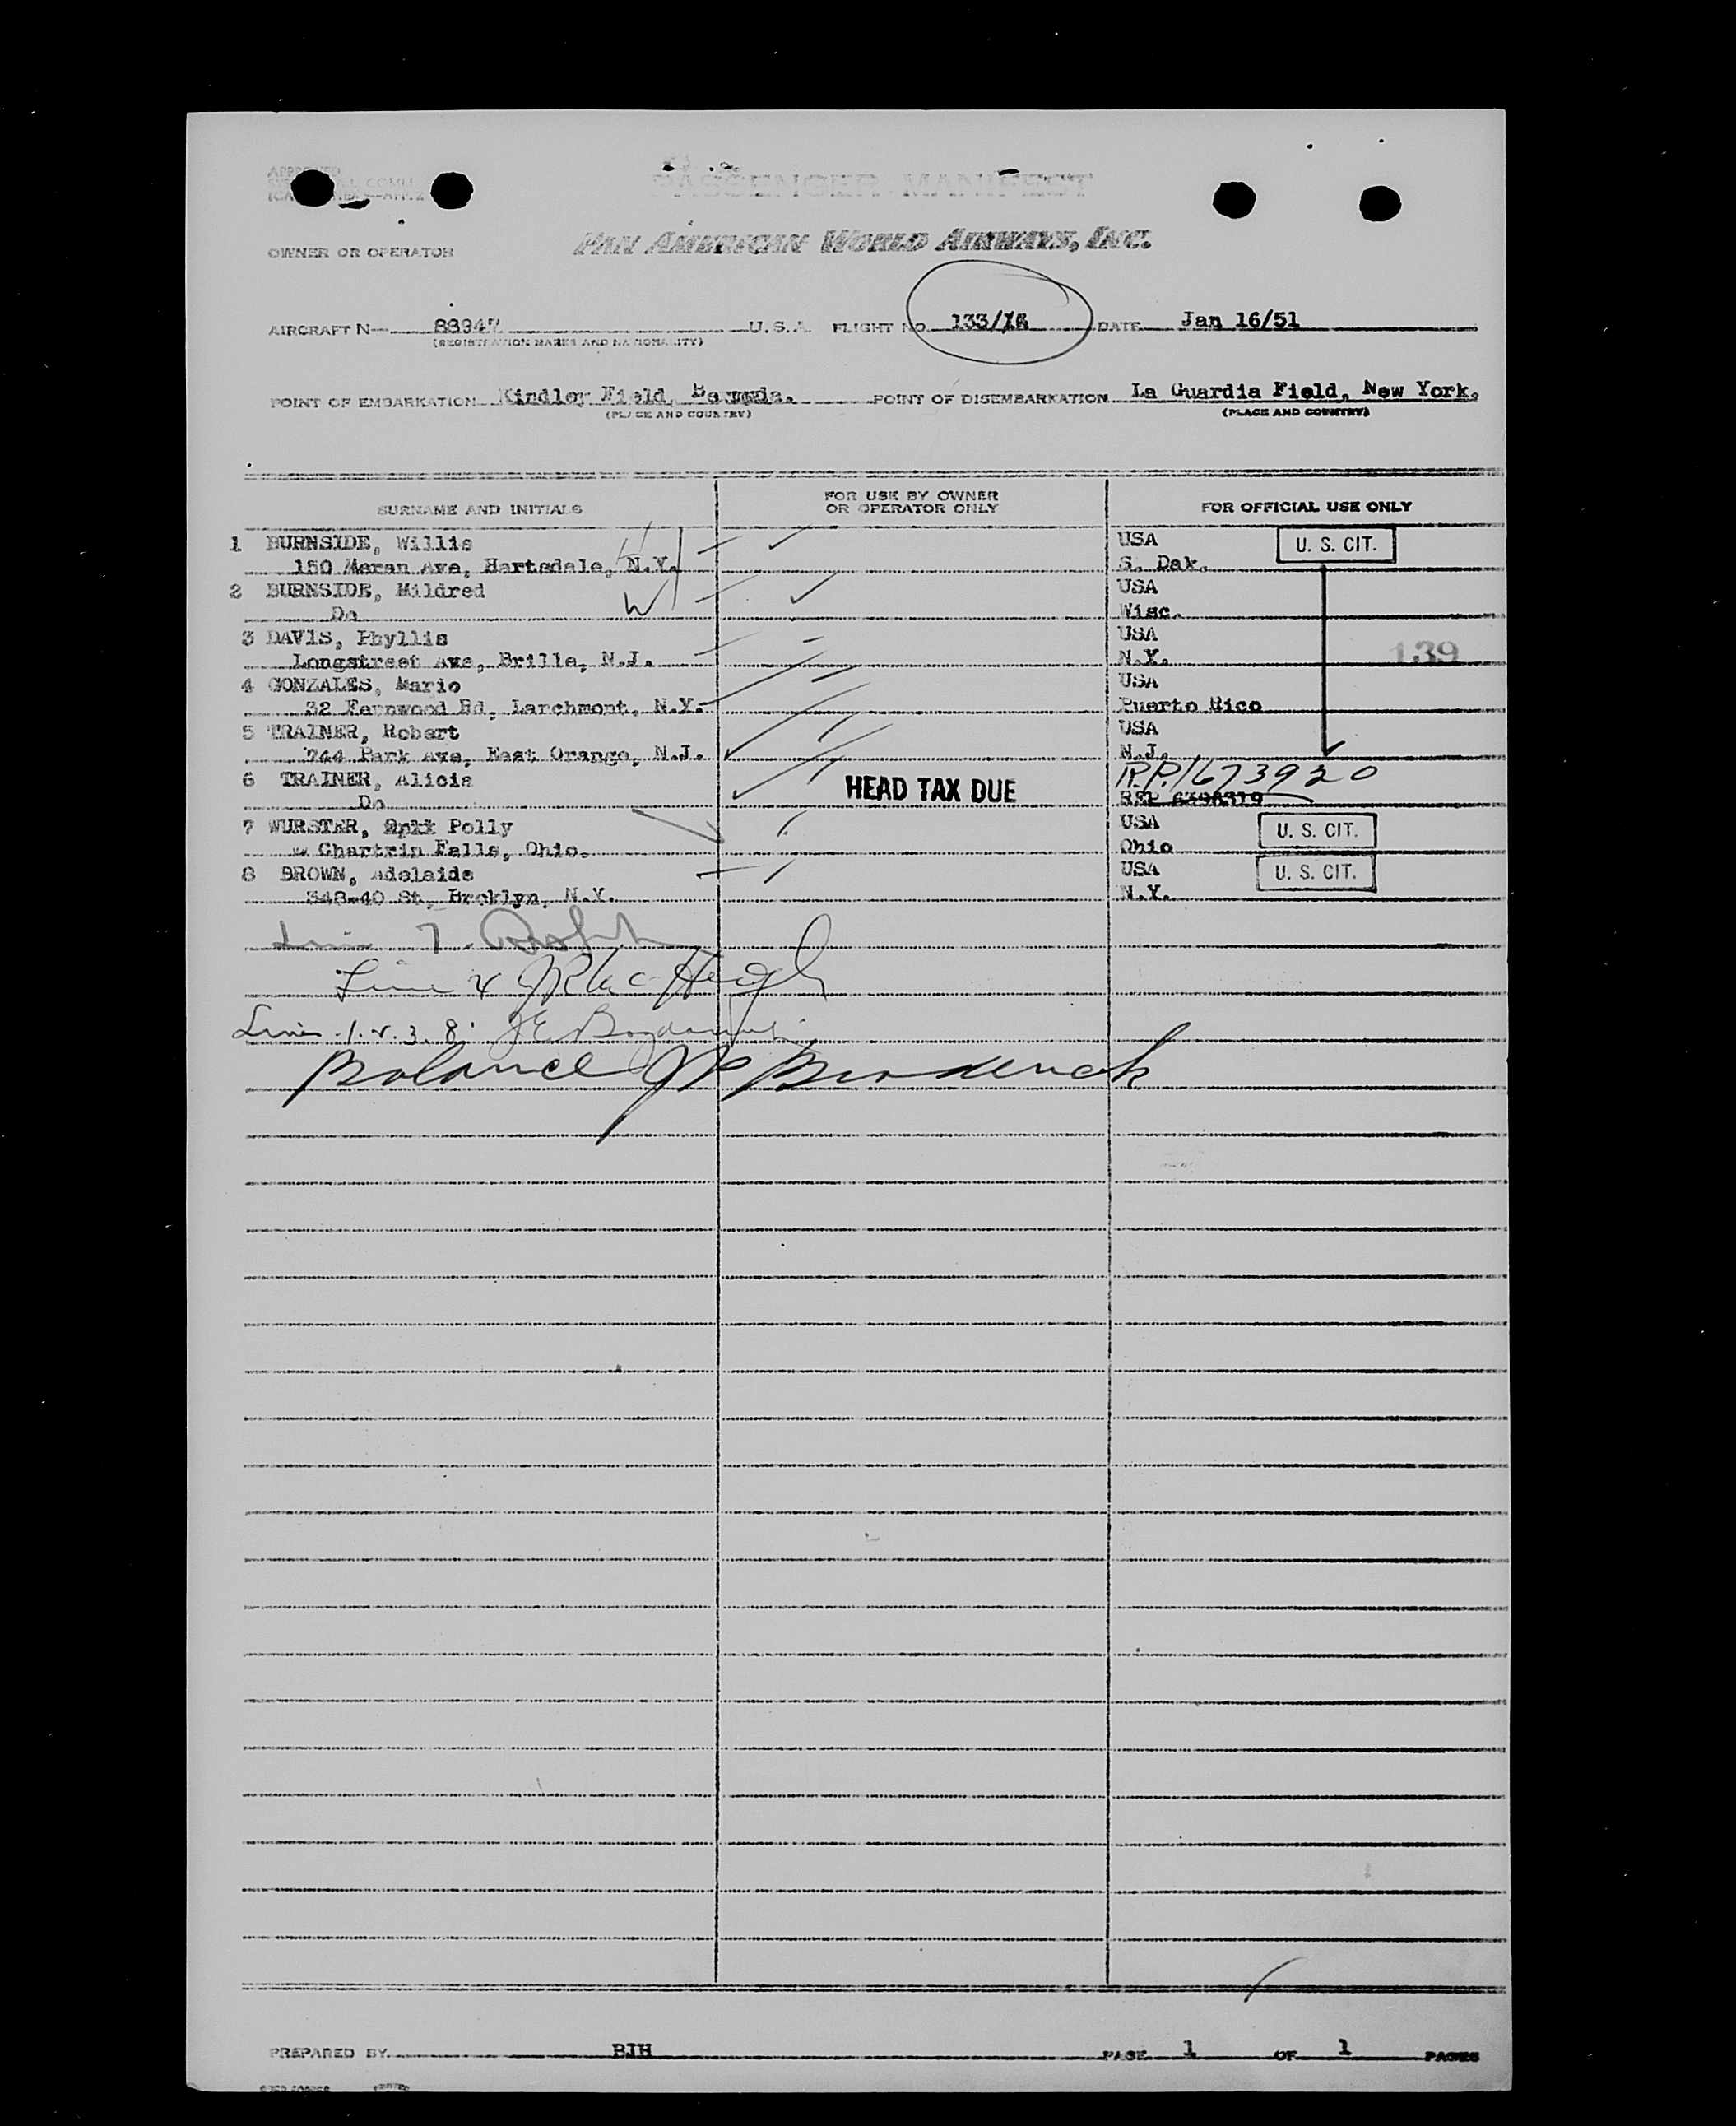 APPROVED
PASSENGER MANIFEST
OWNER OR OPERATOR PAN AMERICAN WORLD AIRWAYS, INC.
AIRCRAFT N— 88947 U.S.A. FLIGHT NO. 133/16 DATE Jan 16/51
(REGISTRATION MARKS AND NATIONALITY)
POINT OF EMBARKATION Kindley Field, Bermuda. POINT OF DISEMBARKATION La Guardia Field, New York.
(PLACE AND COUNTRY) (PLACE AND COUNTRY)
SURNAME AND INITIALS FOR USE BY OWNER OR OPERATOR ONLY FOR OFFICIAL USE ONLY
1 BURNSIDE, Willis USA U. S. CIT.
150 Ave, Hartsdale, N.Y. S. Dak.
2 BURNSIDE, Mildred USA
Do W Wisc.
3 DAVIS, Phyllis USA
Longstreet Ave, Brille, N.J. N.Y. 139
4 GONZALES, Mario USA
32 Fernwood Rd, Larchmont, N.Y. Puerto Rico
5 TRAINER, Robert USA
744 Park Ave, East Orange, N.J. N.J.
6 TRAINER, Alicia HEAD TAX DUE R.P.1673920
Do REP 6398319
7 WURSTER, Polly USA U. S. CIT.
Chartrin Falls, Ohio. Ohio
8 BROWN, Adelaide USA U. S. CIT.
348-40 St, Brcklyn, N.Y. N.Y.
Line 7.
Line 4
Lines 1. 2. 3. 8.
Balance
PREPARED BY BJH PAGE 1 OF 1 PAGES